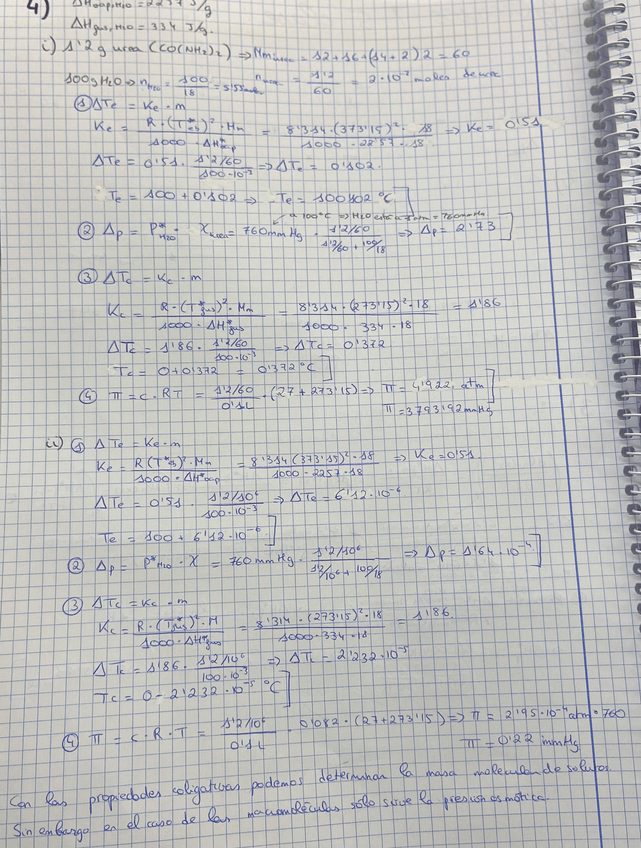 4) ΔHvap,H2O = 2257 J/g
ΔHfus,H2O = 334 J/g.
i) 1'2 g urea (CO(NH2)2) ⇒ Mm urea = 12+16+(14+2)2 = 60
100g H2O ⇒ nH2O = 100/18 = 5'55 moles n urea = 1'2/60 = 2·10⁻² moles de urea
① ΔTe = Ke·m
Ke = R·(T*eb)²·Mm / 1000·ΔH*vap = 8'314·(373'15)²·18 / 1000·2257·18 ⇒ Ke = 0'51
ΔTe = 0'51 · 1'2/60 / 100·10⁻³ ⇒ ΔTe = 0'102.
Te = 100 + 0'102 ⇒ Te = 100'102 °C]
a 100°C ⇒ H2O está a 1 atm = 760 mmHg
② Δp = P*H2O · X urea = 760 mmHg · 1'2/60 / 1'2/60 + 100/18 ⇒ Δp = 2'73]
③ ΔTc = Kc·m
Kc = R·(T*fus)²·Mm / 1000·ΔH*fus = 8'314·(273'15)²·18 / 1000·334·18 = 1'86
ΔTc = 1'86 · 1'2/60 / 100·10⁻³ ⇒ ΔTc = 0'372
Tc = 0+0'372 = 0'372 °C]
④ π = c·RT = 1'2/60 / 0'1L · (27+273'15) ⇒ π = 4'922 atm]
π = 3793'92 mmHg
ii) ① ΔTe = Ke·m
Ke = R(T*eb)²·Mm / 1000·ΔH*vap = 8'314(373'15)²·18 / 1000·2257·18 ⇒ Ke = 0'51.
ΔTe = 0'51 · 1'2/10⁶ / 100·10⁻³ ⇒ ΔTe = 6'12·10⁻⁶
Te = 100 + 6'12·10⁻⁶]
② Δp = P*H2O · X = 760 mmHg · 1'2/10⁶ / 1'2/10⁶ + 100/18 ⇒ Δp = 1'64·10⁻⁴]
③ ΔTc = Kc·m
Kc = R·(T*fus)²·M / 1000·ΔH*fus = 8'314·(273'15)²·18 / 1000·334·18 = 1'86
ΔTc = 1'86 · 1'2/10⁶ / 100·10⁻³ ⇒ ΔTc = 2'232·10⁻⁵
Tc = 0 - 2'232·10⁻⁵ °C]
④ π = c·R·T = 1'2/10⁶ / 0'1L · 0'082·(27+273'15) ⇒ π = 2'95·10⁻⁴ atm·760
π = 0'22 mmHg
Con las propiedades coligativas podemos determinar la masa molecular de solutos.
Sin embargo en el caso de las macromoléculas sólo sirve la presión osmótica.